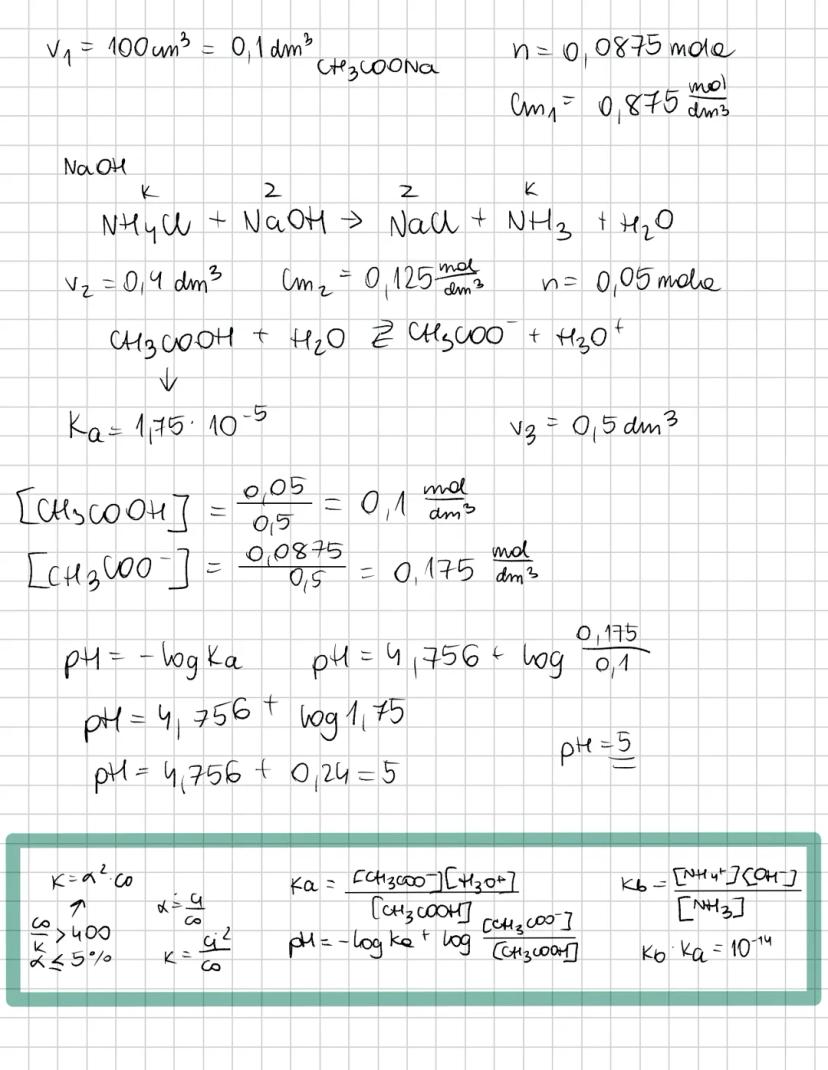 V₁ = 100 cm³ = 0,1 dm³ n = 0,0875 mola
CH₃COONa
Cm₁ = 0,875 mol/dm³
NaOH
K Z Z K
NH₄Cl + NaOH → NaCl + NH₃ + H₂O
V₂ = 0,4 dm³ Cm₂ = 0,125 mol/dm³ n = 0,05 mola
CH₃COOH + H₂O ⇄ CH₃COO⁻ + H₃O⁺
↓
Ka = 1,75 · 10⁻⁵ V₃ = 0,5 dm³
[CH₃COOH] = 0,05/0,5 = 0,1 mol/dm³
[CH₃COO⁻] = 0,0875/0,5 = 0,175 mol/dm³
pH = -log Ka pH = 4,756 + log 0,175/0,1
pH = 4,756 + log 1,75
pH = 5
pH = 4,756 + 0,24 = 5
K = α² · co
↑
co/K > 400
α ≤ 5%
α = cj/co
K = cj²/co
Ka = [CH₃COO⁻][H₃O⁺]/[CH₃COOH]
pH = -log ka + log [CH₃COO⁻]/[CH₃COOH]
Kb = [NH₄⁺][OH⁻]/[NH₃]
Kb · Ka = 10⁻¹⁴